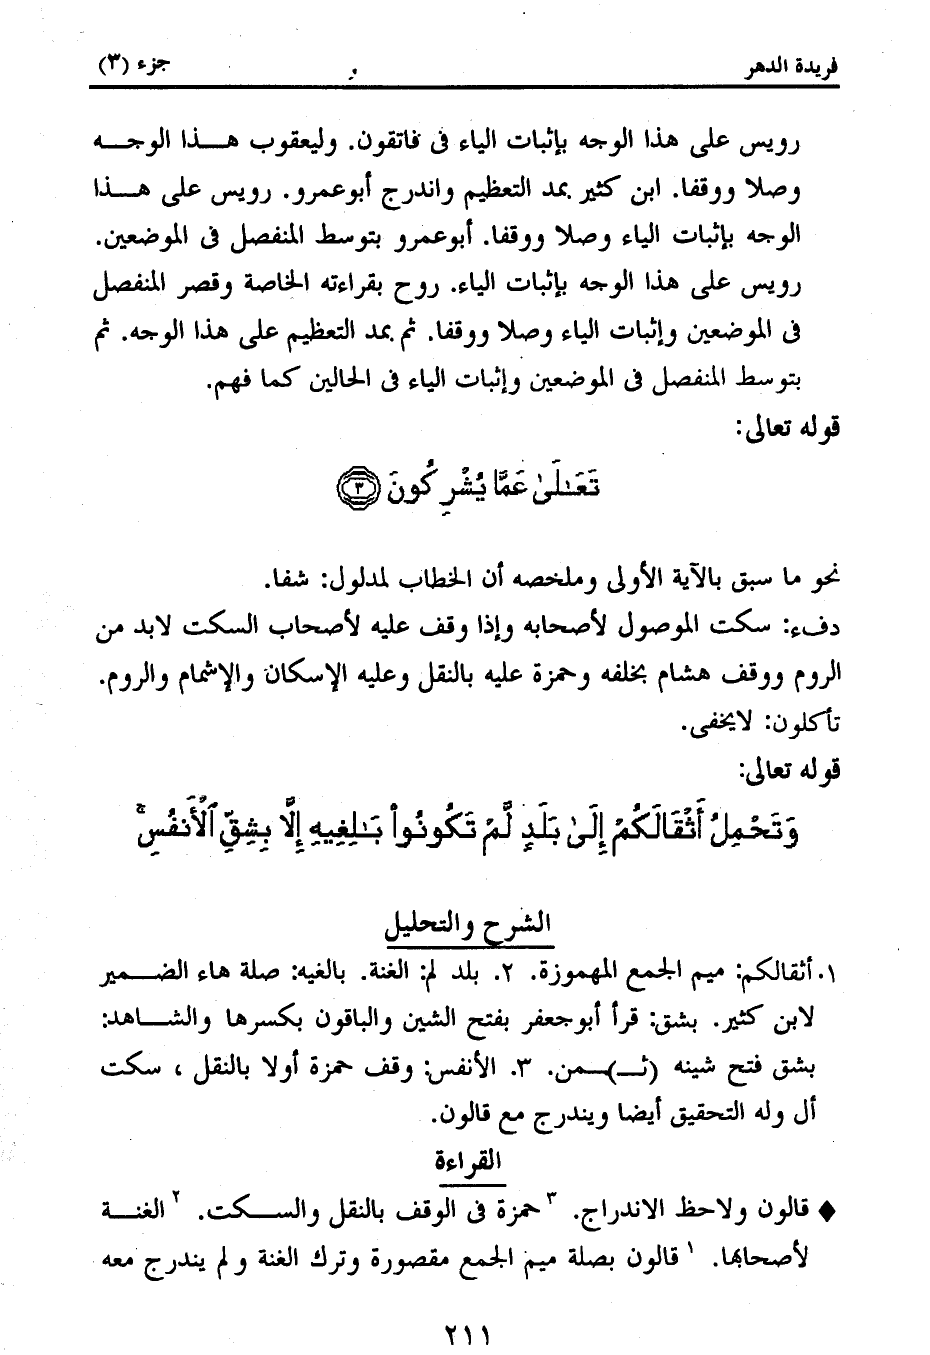 فريدة الدهر جزء (٣)
رويس على هذا الوجه بإثبات الياء فى فاتقون. وليعقوب هـــذا الوجـــه
وصلا ووقفا. ابن كثير بمد التعظيم واندرج أبوعمرو. رويس على هـــذا
الوجه بإثبات الياء وصلا ووقفا. أبوعمرو بتوسط المنفصل فى الموضعين.
رويس على هذا الوجه بإثبات الياء. روح بقراءته الخاصة وقصر المنفصل
فى الموضعين وإثبات الياء وصلا ووقفا. ثم بمد التعظيم على هذا الوجه. ثم
بتوسط المنفصل فى الموضعين وإثبات الياء فى الحالين كما فهم.
قوله تعالى:
تَعَـٰلَىٰ عَمَّا يُشْرِكُونَ ٣
نحو ما سبق بالآية الأولى وملخصه أن الخطاب لمدلول: شفا.
دفء: سكت الموصول لأصحابه وإذا وقف عليه لأصحاب السكت لابد من
الروم ووقف هشام بخلفه وحمزة عليه بالنقل وعليه الإسكان والإشمام والروم.
تأكلون: لايخفى.
قوله تعالى:
وَتَحْمِلُ أَثْقَالَكُمْ إِلَىٰ بَلَدٍ لَّمْ تَكُونُوا۟ بَـٰلِغِيهِ إِلَّا بِشِقِّ ٱلْأَنفُسِ ۚ
الشرح والتحليل
١. أثقالكم: ميم الجمع المهموزة. ٢. بلد لم: الغنة. بالغيه: صلة هاء الضــمير
لابن كثير. بشق: قرأ أبوجعفر بفتح الشين والباقون بكسرها والشـــاهد:
بشق فتح شينه (ثــ)ــمن. ٣. الأنفس: وقف حمزة أولا بالنقل ، سكت
أل وله التحقيق أيضا ويندرج مع قالون.
القراءة
♦ قالون ولاحظ الاندراج. ٣ حمزة فى الوقف بالنقل والســكت. ٢ الغنـــة
لأصحابها. ١ قالون بصلة ميم الجمع مقصورة وترك الغنة ولم يندرج معه
٢١١